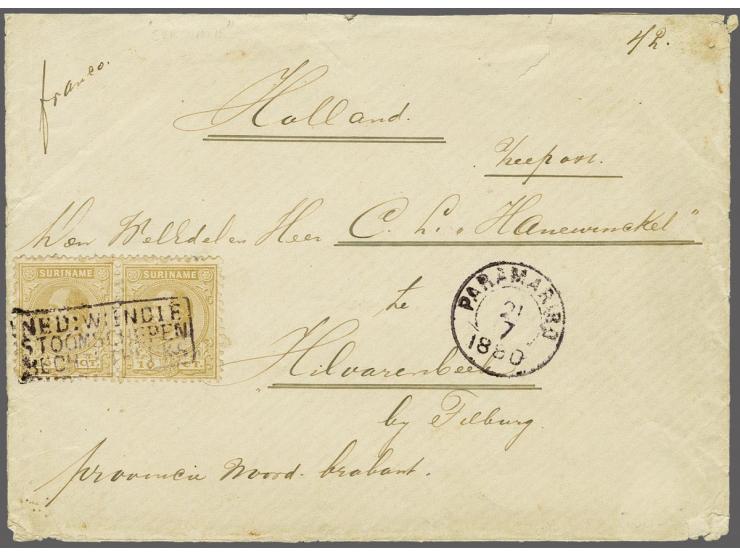 franco.
1/2.
Holland.
Zeepost.
Den WelEdelen Heer C. L. "Hanewinckel"
SURINAME SURINAME
NED: W: INDIE
STOOMSCHEPEN
RECH
PARAMARIBO
21
7
1880
te
"Hilvarenbeek
by Tilburg.
provincie Noord-brabant.